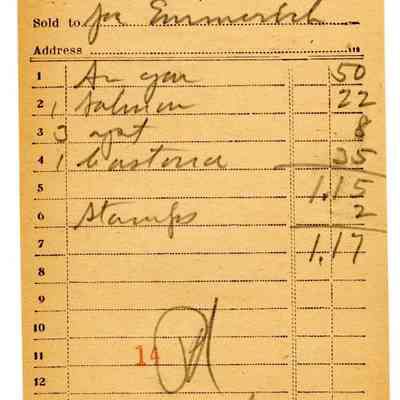 Sold to Joe Emmerich
Address
1 50
2 1 Salmon 22
3 3 8
4 1 Castoria 35
5 1.15
6 Stamps 2
7 1.17
8
9
10
11 14 Pd
12